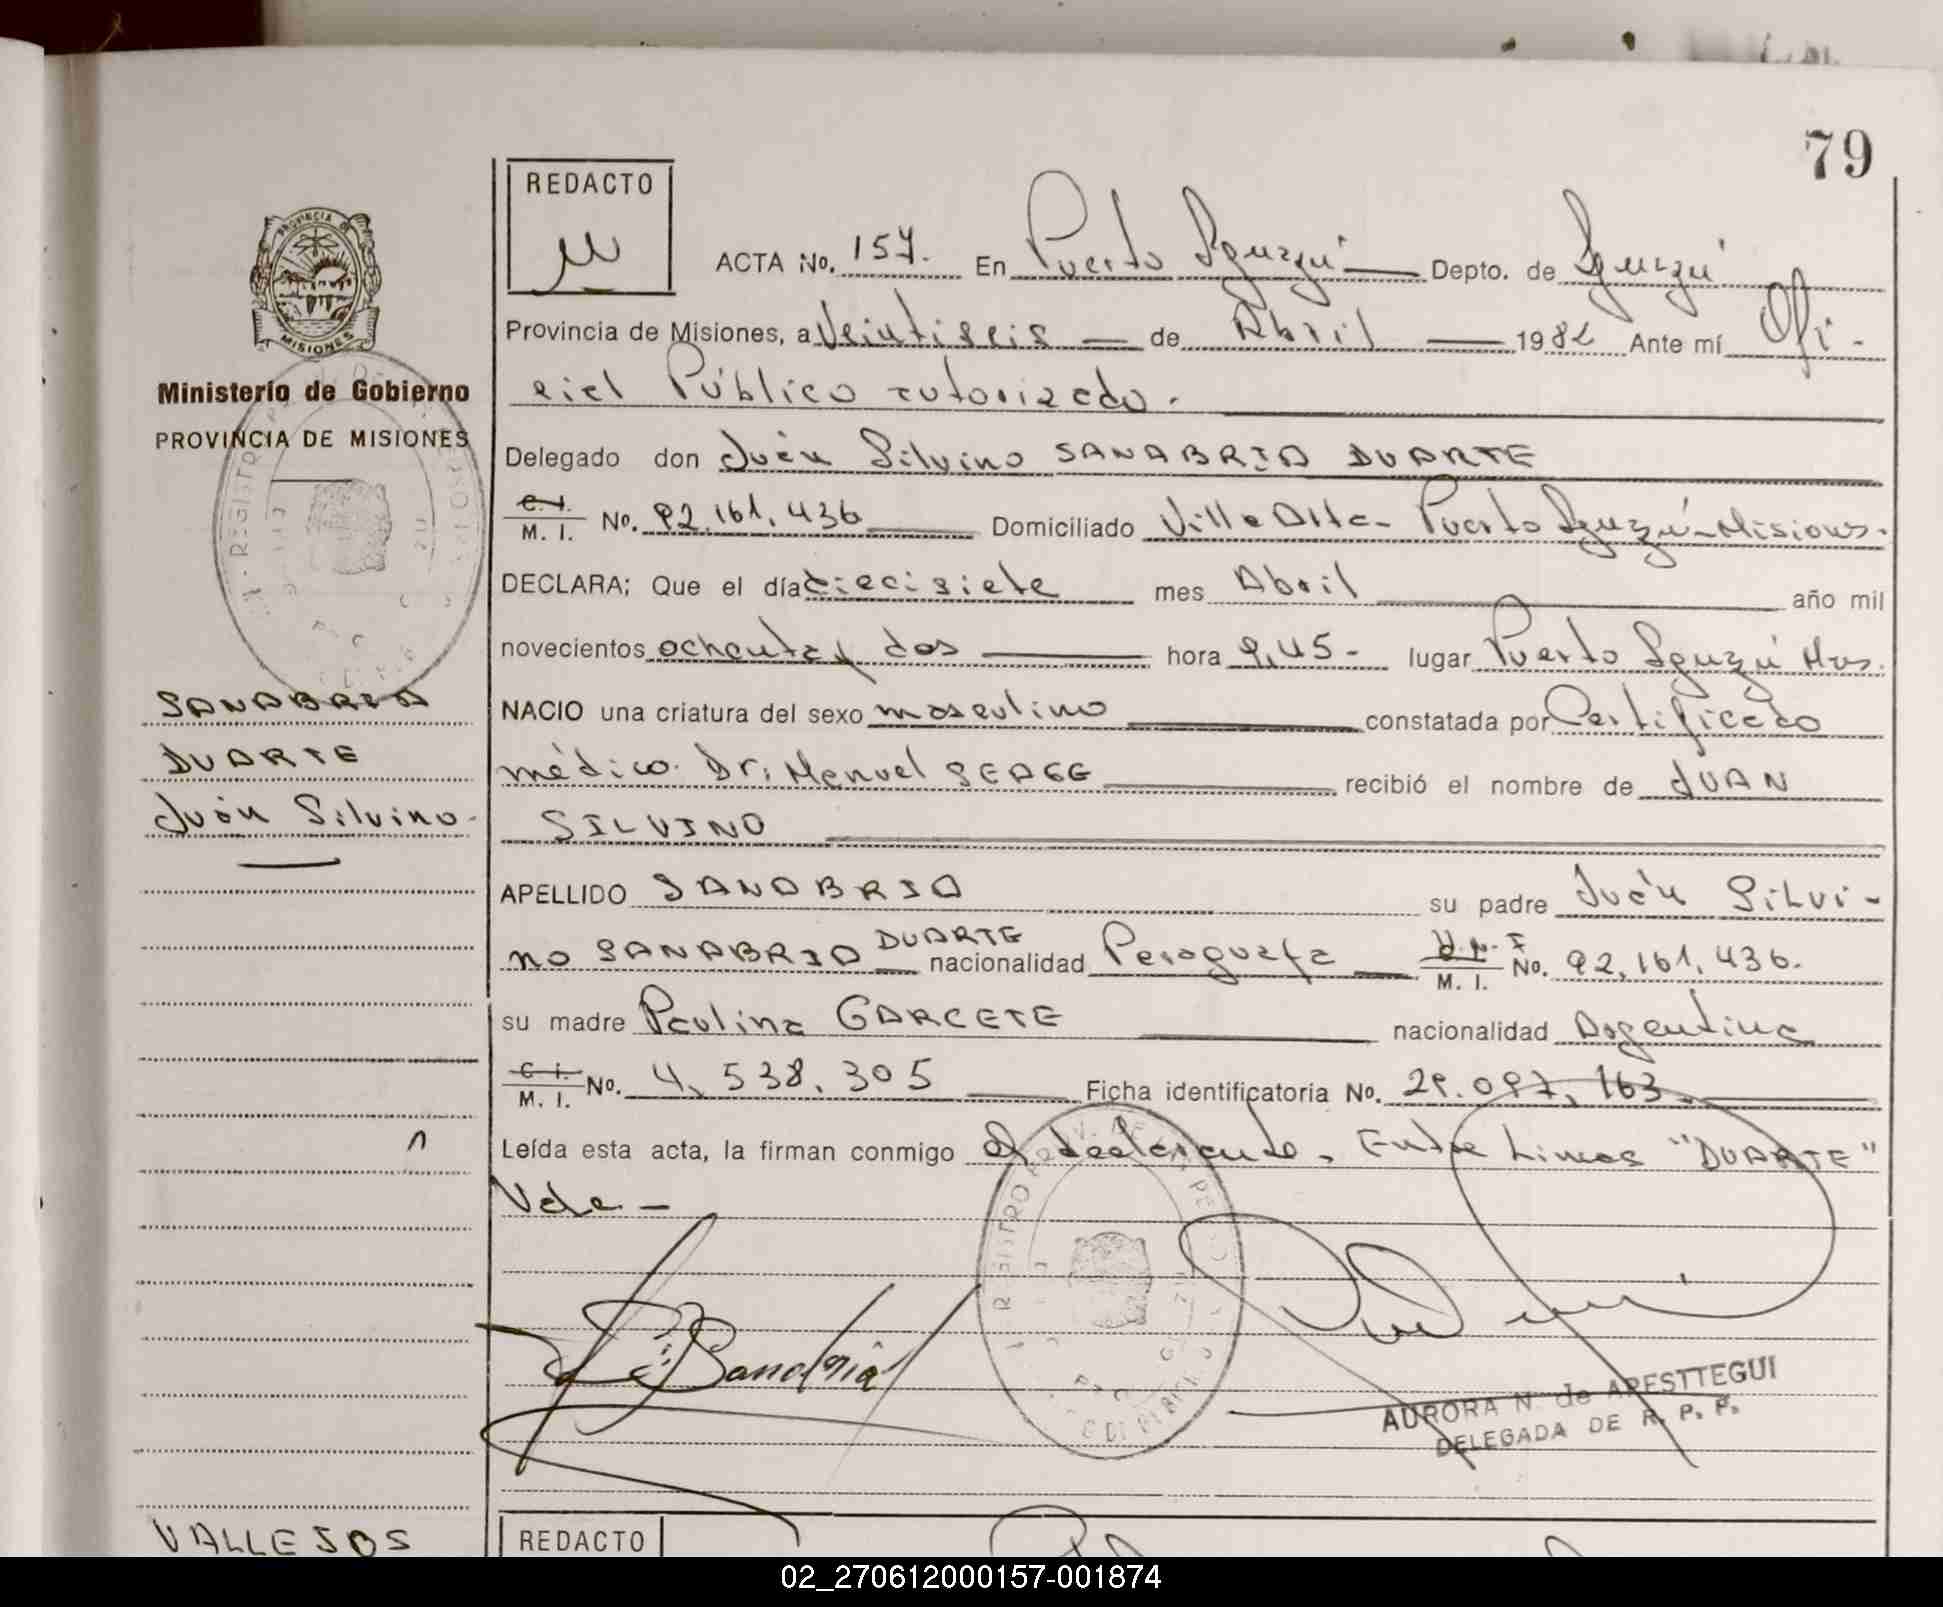 79
REDACTO
ACTA No. 157. En Puerto Iguazú Depto. de Iguazú
Provincia de Misiones, a Veintiseis de Abril 1982 Ante mí Ofi-
cial Público autorizado.
Ministerio de Gobierno
PROVINCIA DE MISIONES
Delegado don Juan Silvino SANABRIA DUARTE
C. I.
M. I. No. 92.161.436 Domiciliado Villa Alta - Puerto Iguazú - Misiones.
DECLARA; Que el día diecisiete mes Abril año mil
novecientos ochenta y dos hora 9,45 - lugar Puerto Iguazú Mnes.
SANABRIA
DUARTE
Juan Silvino.
NACIO una criatura del sexo masculino constatada por Certificado
médico. Dr. Manuel recibió el nombre de JUAN
SILVINO
APELLIDO SANABRIA su padre Juan Silvi-
no SANABRIA DUARTE nacionalidad Paraguaya M. I. No. 92.161.436.
su madre Paulina GARCETE nacionalidad Argentina
C. I.
M. I. No. 4.538.305 Ficha identificatoria No. 29.097.163.
Leída esta acta, la firman conmigo el declarante. Entre Lineas "DUARTE"
Vale -
AURORA N. de APESTTEGUI
DELEGADA DE R. P. P.
VALLEJOS
REDACTO
02_270612000157-001874